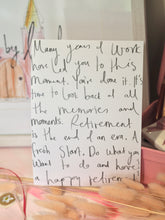 Many years of work
have led you to this
moment. You've done it. It's
time to look back at all
the memories and
moments. Retirement
is the end of an era. A
fresh start. Do what you
want to do and have
a happy retirem